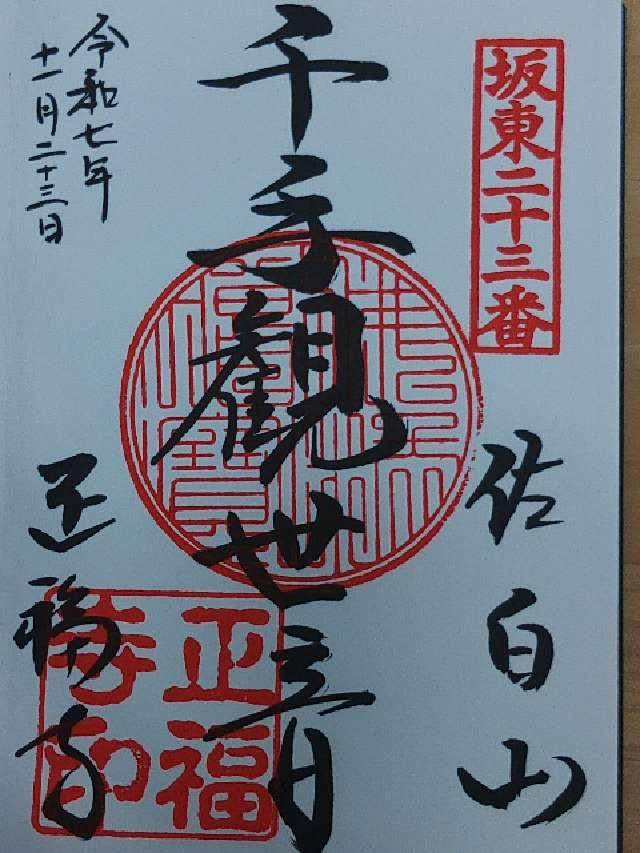 坂東二十三番
佐白山
千手観世音
令和七年
十一月二十三日
正福寺
正福
寺印